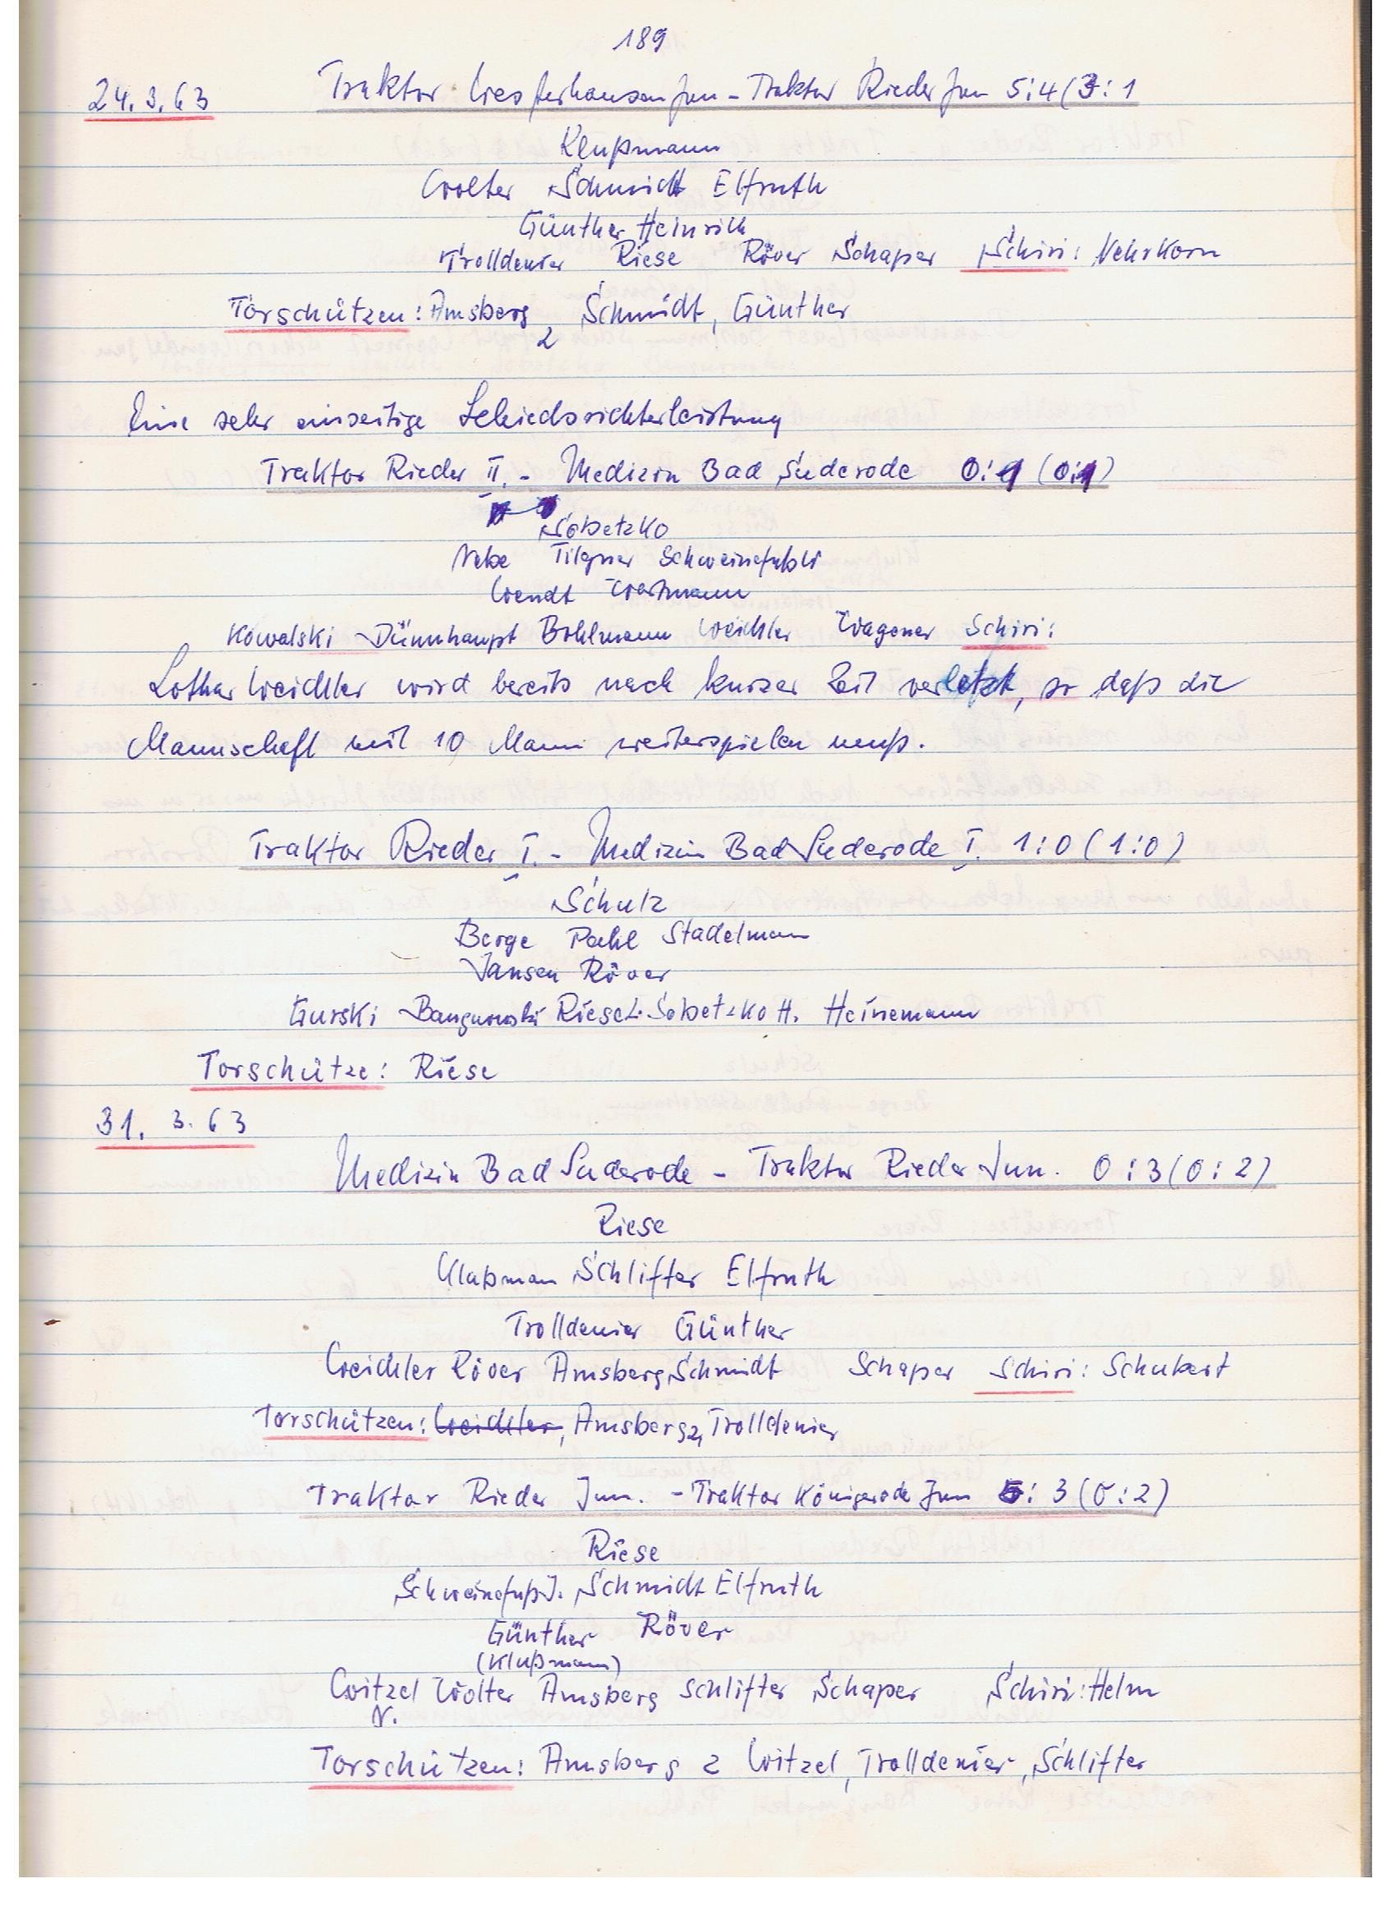 189
24.3.63 Traktor Westerhausen Jun - Traktor Rieder Jun 5:4 (3:1
Klußmann
Wolter Schmidt Elfruth
Günther Heinrich
Trolldenier Riese Röver Schaper Schiri: Nehrkorn
Torschützen: Amsberg Schmidt, Günther
2
Eine sehr einseitige Schiedsrichterleistung
Traktor Rieder II. - Medizin Bad Suderode 0:1 (0:1)
Sobetzko
Nebe Tilgner Schweinefuß
Wendt Trautmann
Kowalski Dünnhaupt Bohlmann Weichler Wagener Schiri:
Lothar Weichler wird bereits nach kurzer Zeit verletzt, so daß die
Mannschaft mit 10 Mann weiterspielen muß.
Traktor Rieder I. - Medizin Bad Suderode I. 1:0 (1:0)
Schulz
Berge Pahl Stadelmann
Jansen Röver
Gurski Riese L. Sobetzko H. Heinemann
Torschütze: Riese
31. 3. 63
Medizin Bad Suderode - Traktor Rieder Jun. 0:3 (0:2)
Riese
Klaßman Schlifter Elfruth
Trolldenier Günther
Weichler Röver Amsberg Schmidt Schaper Schiri: Schubert
Torschützen: Weichler, Amsberg 2, Trolldenier
Traktor Rieder Jun. - Traktor Königerode Jun 5:3 (0:2)
Riese
Schweinefuß J. Schmidt Elfruth
Günther Röver
(Klußmann)
Witzel Wolter Amsberg Schlifter Schaper Schiri: Helm
N.
Torschützen: Amsberg 2 Witzel, Trolldenier, Schlifter